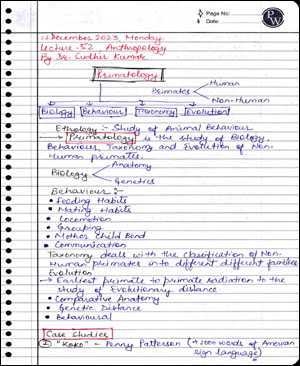 Page No:
Date:
PW
11 December 2023, Monday
Lecture - 52, Anthropology
By Dr. Sudhir Kumar
Primatology
Primates
Human
Non-Human
Biology Behaviour Taxonomy Evolution
Ethology :- Study of Animal Behaviour
Primatology is the study of Biology,
Behaviour, Taxonomy and Evolution of Non-
Human primates.
Biology
Anatomy
Genetics
Behaviour :-
• Feeding Habits
• Mating Habits
• Locomotion
• Grouping
• Mother Child Bond
• Communication
Taxonomy deals with the classification of Non-
Human primates into different different families
Evolution
→ Earliest primate to primate radiation to the
study of Evolutionary distance
• Comparative Anatomy
• Genetic Distance
• Behavioural
Case Studies
① "KOKO" - Penny Patterson (→ 1000 words of American
sign language)